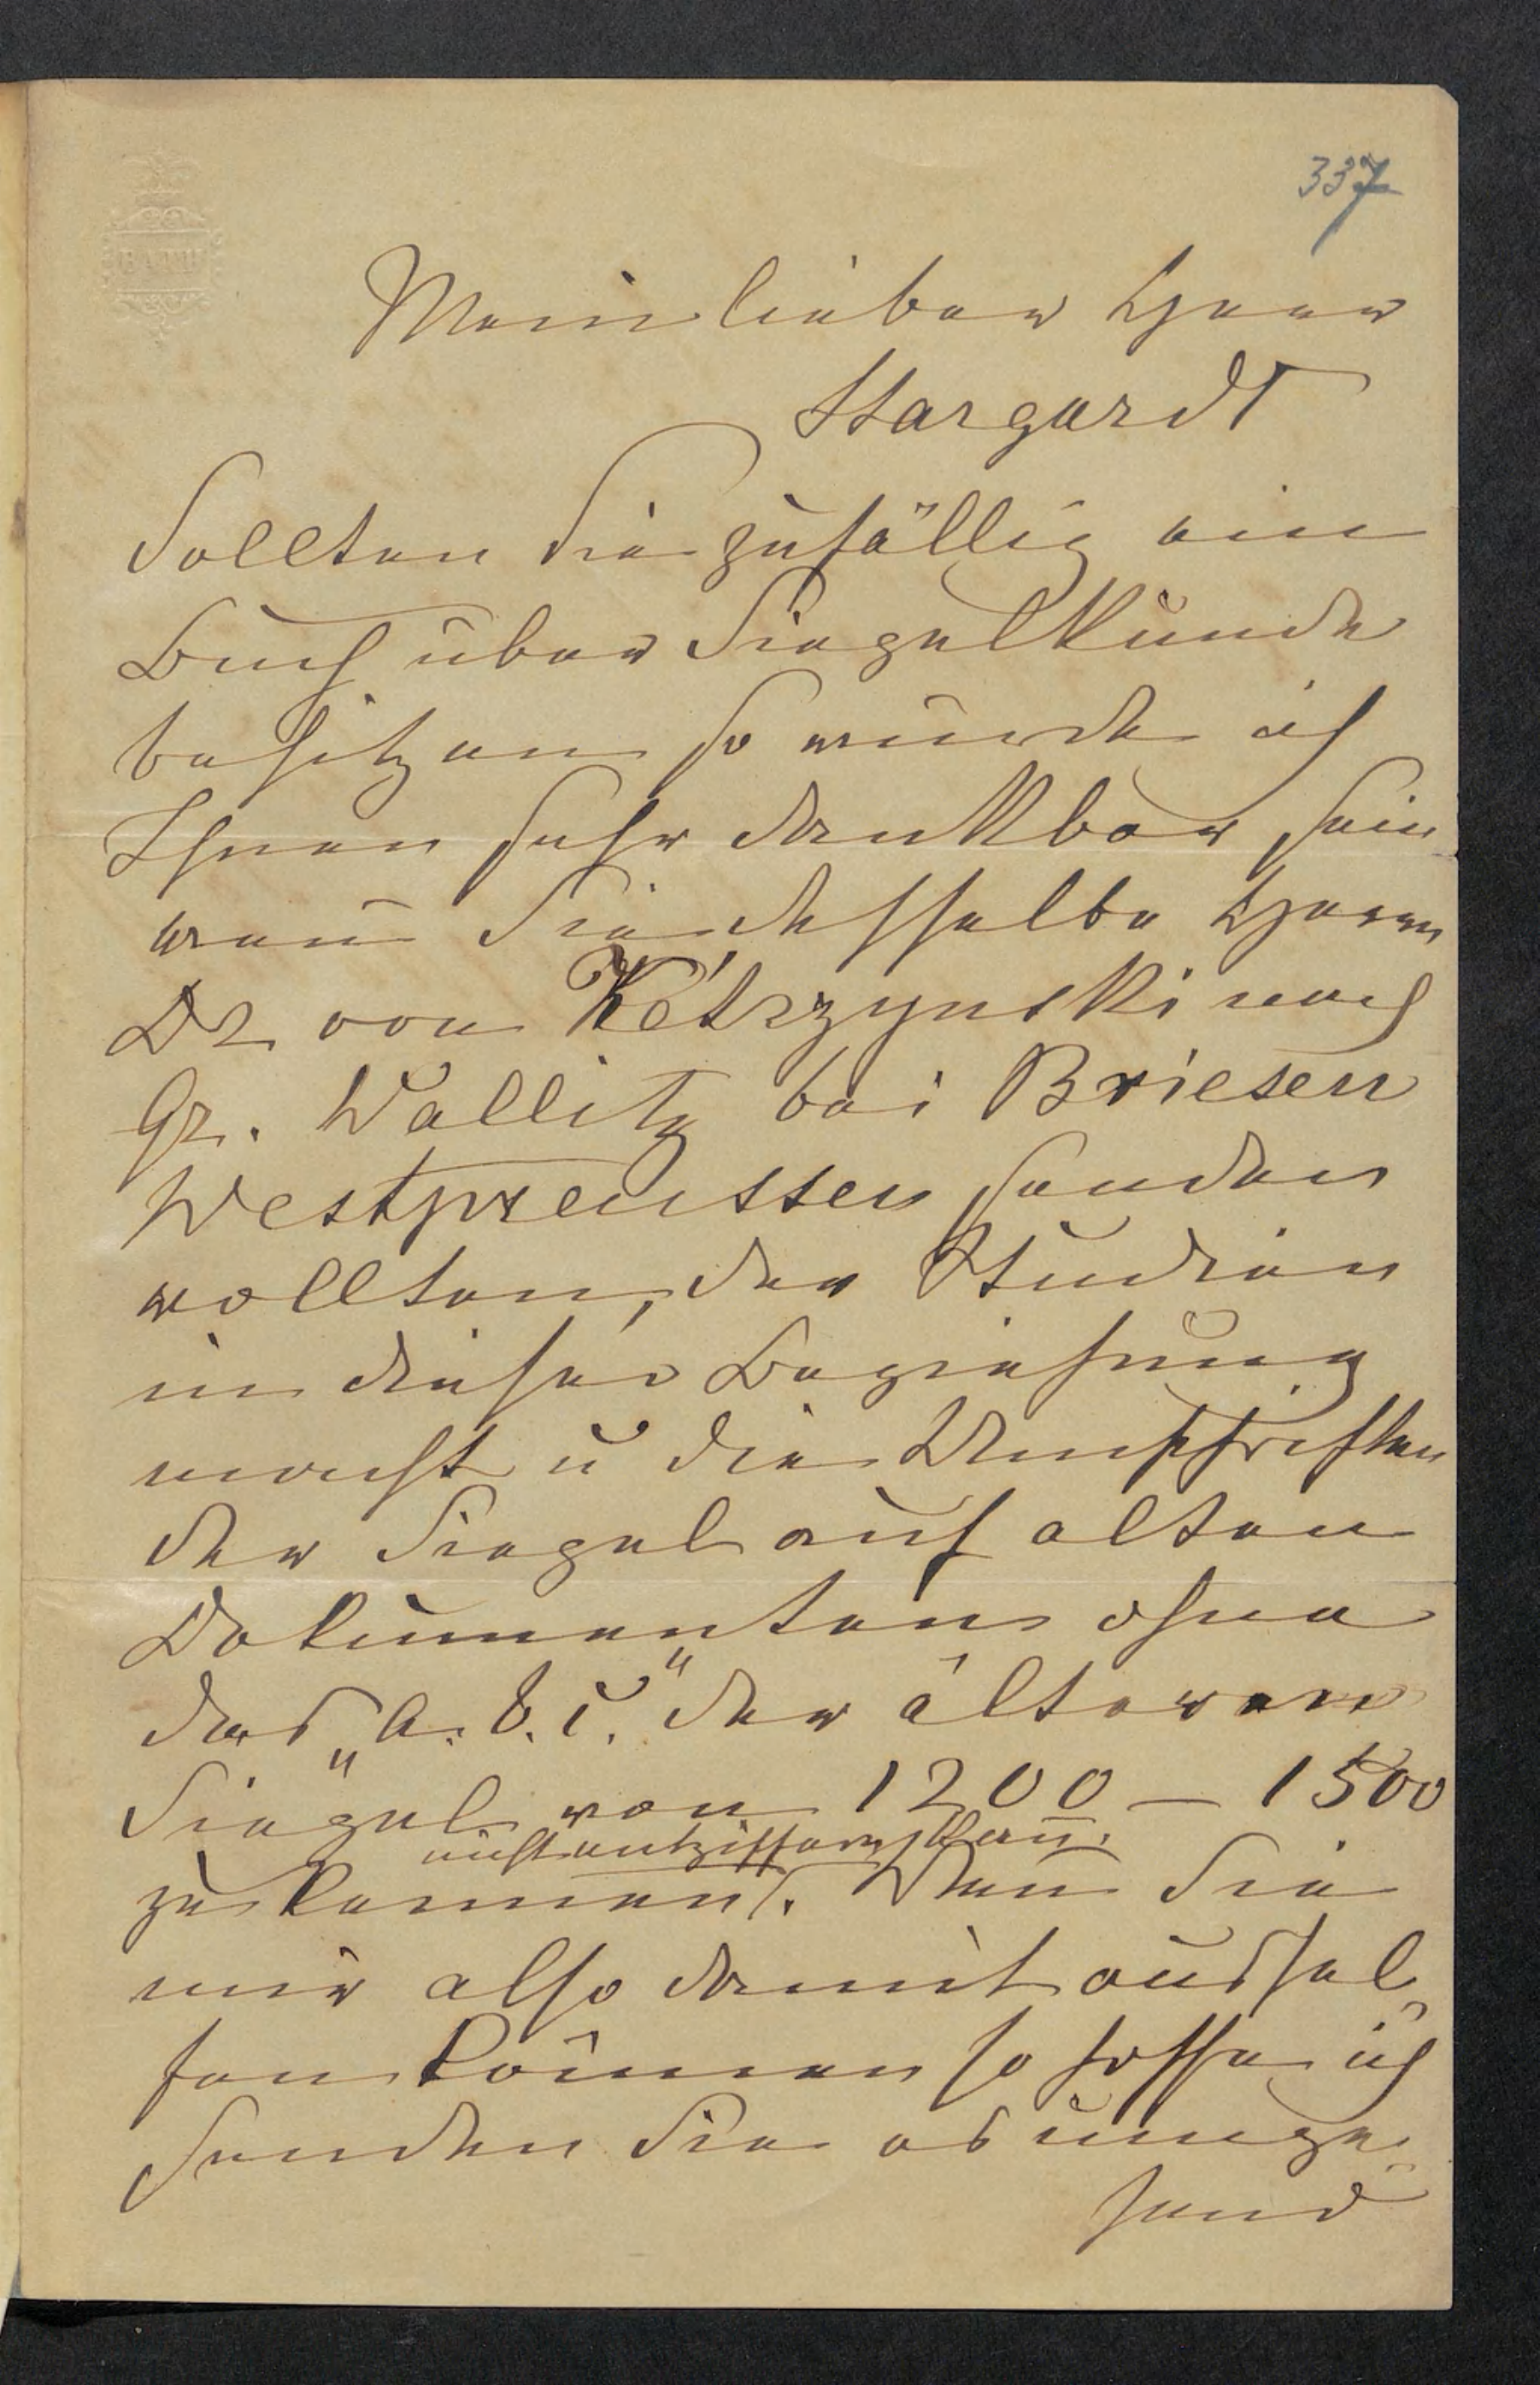 337
BATH
Mein lieber Herr
Stargardt
Sollten Sie zufällig ein
Buch über Siegelkunde
besitzen so würde ich
Ihnen sehr dankbar sein
wenn̄ Sie dasselbe Herrn
Dr von Kętrzynski nach
Gr. Wallitz bei Briesen
Westpreussen senden
wollten, der Studien
in dieser Beziehung
macht u die Umschriften
der Siegel auf alten
Dokumenten ohne
das „A. b. c." der älteren
Siegel von 1200 – 1500
nicht entziffern kann̄.
zu kennen. Wenn Sie
mir also damit aushel
fen können so hoffe ich
senden Sie es umge
hend